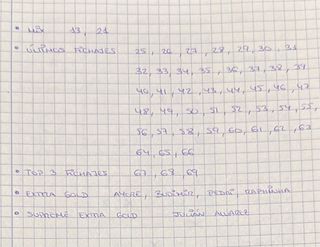 • MIX 13, 21
• ÚLTIMOS FICHAJES 25, 26, 27, 28, 29, 30, 31
32, 33, 34, 35, 36, 37, 38, 39
40, 41, 42, 43, 44, 45, 46, 47
48, 49, 50, 51, 52, 53, 54, 55,
56, 57, 58, 59, 60, 61, 62, 63
64, 65, 66
• TOP 3 FICHAJES 67, 68, 69
• EXTRA GOLD AYOZE, BUDIMIR, PEDRI, RAPHINHA
• SUPREME EXTRA GOLD JULIÁN ALVAREZ